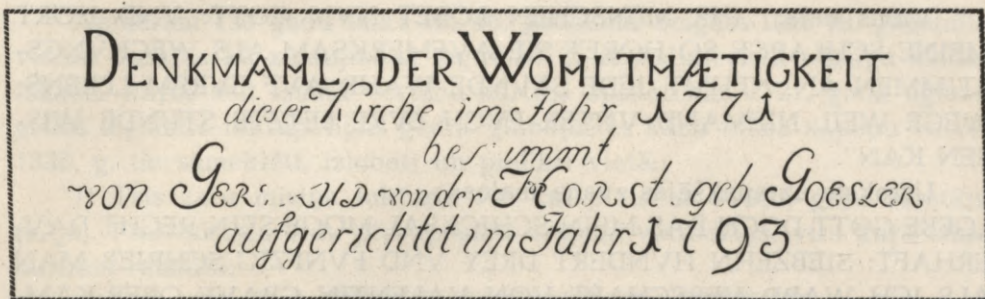 DENKMAHL DER WOHLTHÆTIGKEIT
dieser Kirche im Jahr 1771
bestimmt
von GERTRUD von der HORST geb GOESLER
aufgerichtet im Jahr 1793